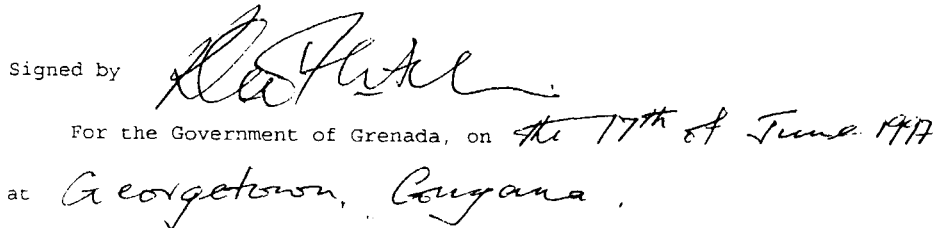 Signed by
For the Government of Grenada, on the 17th of June
at Georgetown, Guyana.